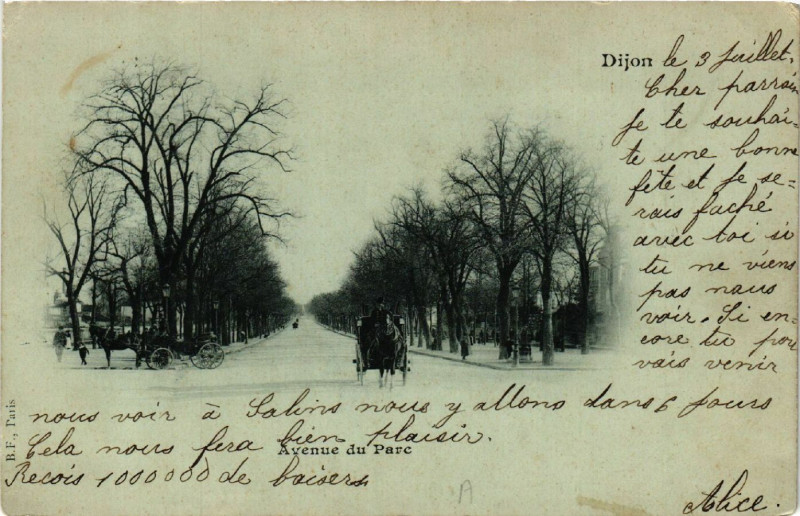 Dijon le 3 Juillet.
Cher parrain
Je te souhai-
te une bonne
fête et Je se-
rais faché
avec toi si
tu ne viens
pas nous
voir. Si en-
core tu pou
vais venir
nous voir à Salins nous y allons dans 6 Jours
Cela nous fera bien plaisir.
Avenue du Parc
Recois 1000000 de baisers
Alice.
B.F., Paris
A